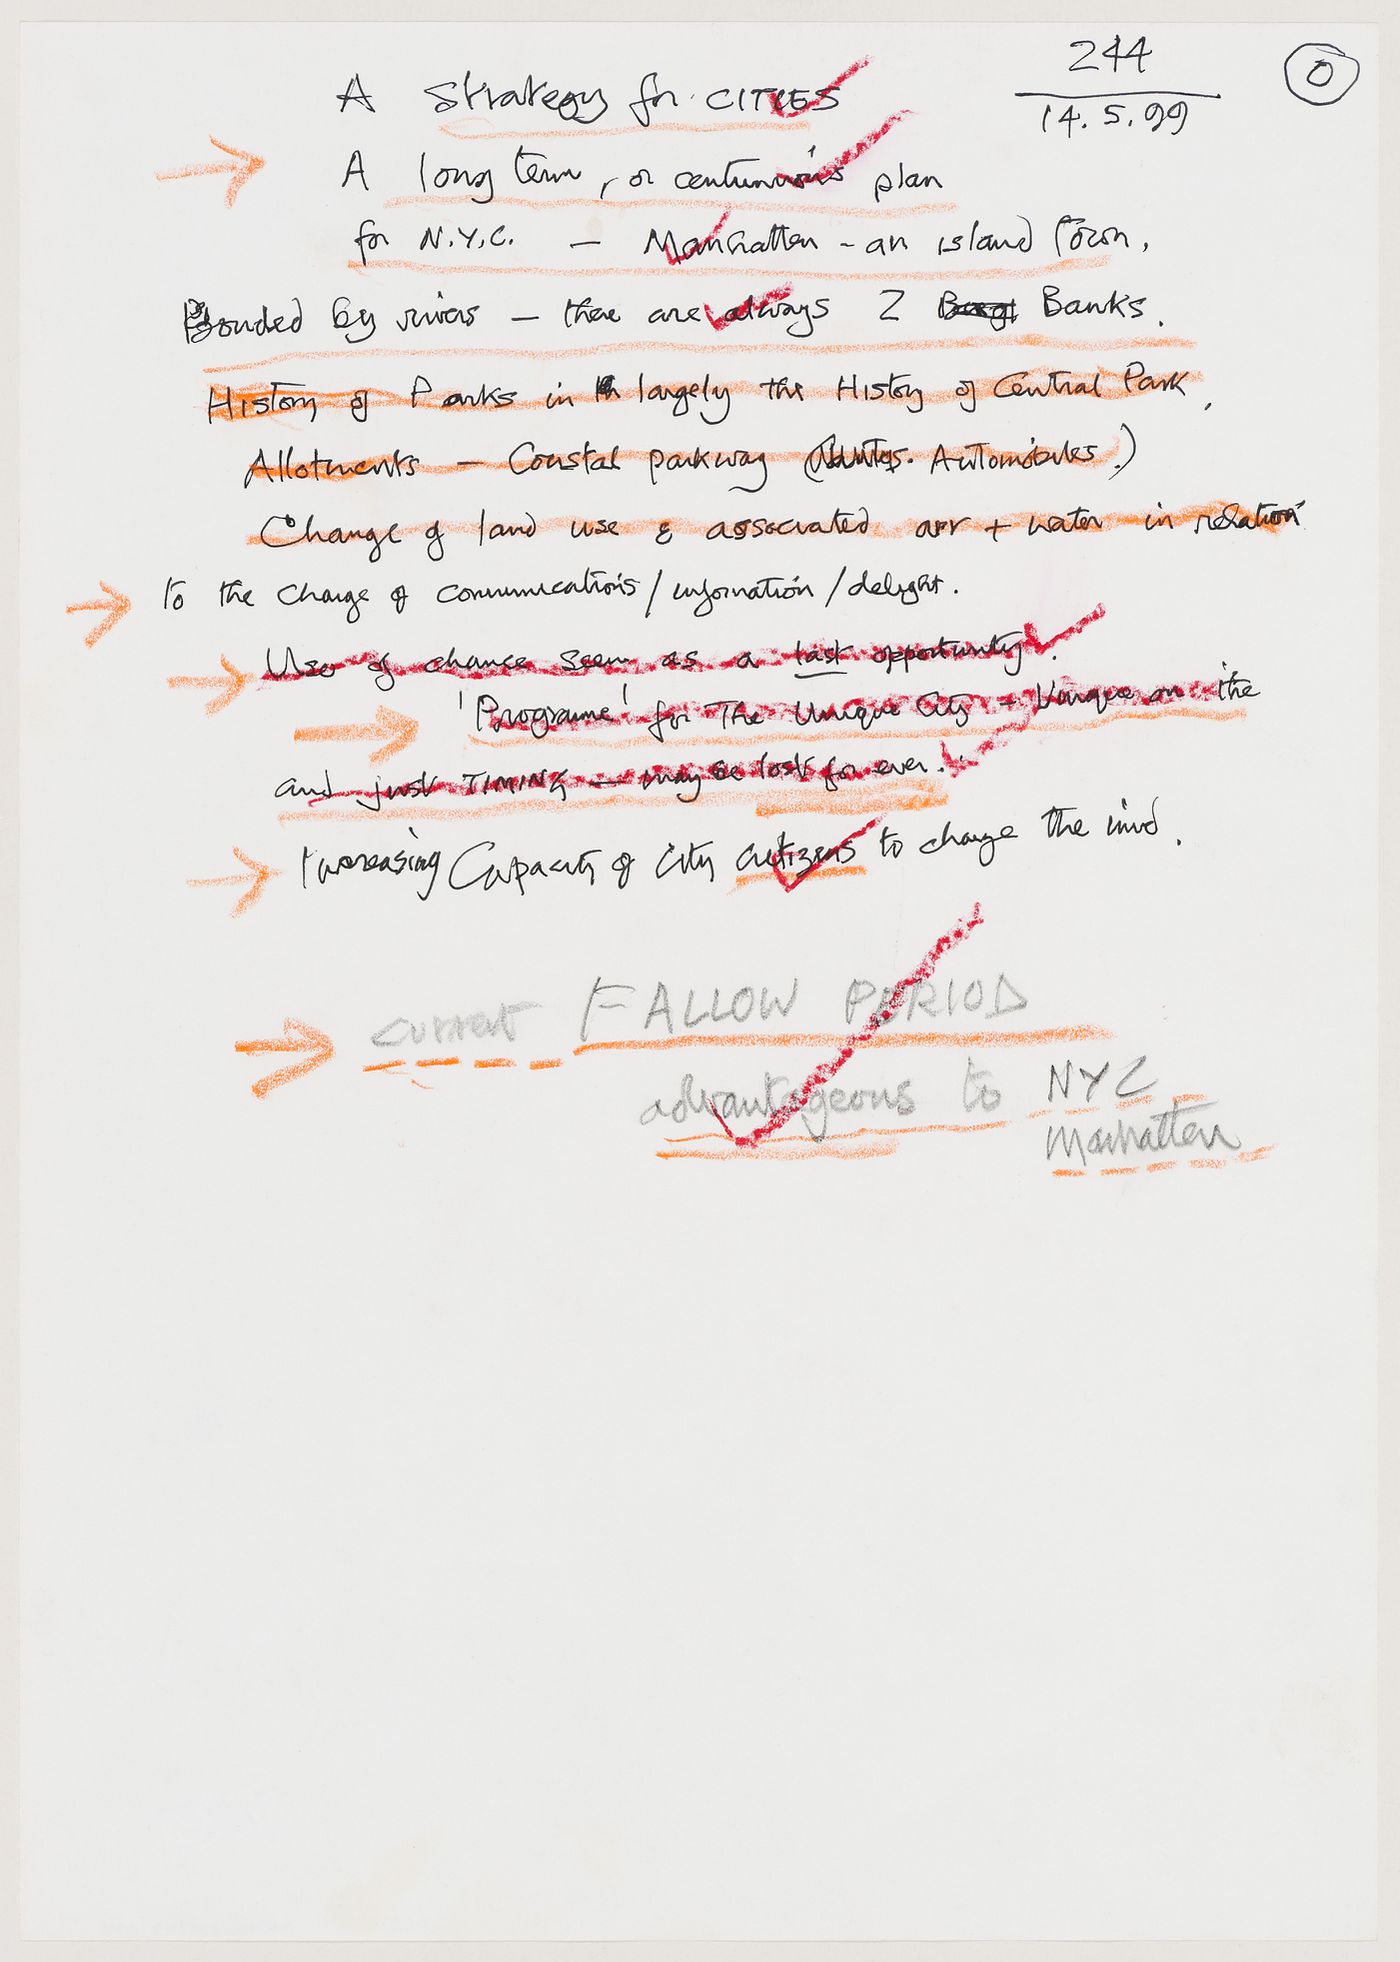 244
14.5.99
0
A Strategy for CITIES
A long term, or continuous plan
for N.Y.C. — Manhatten - an island town.
Bonded by rivers — there are always 2 Banks.
History of Parks in largely the History of Central Park.
Allotments — Coastal parkway ( Automobiles.)
Change of land use & associated air + water in relation
to the change of communications / information / delight.
Use of chance seem as a last opportunity.
'Programe' for The Unique City - Unique in the
and just TIMING — may be lost for ever.
Increasing Capacity of City citizens to change the mind.
current FALLOW PERIOD
advantageous to NYC
Manhatten